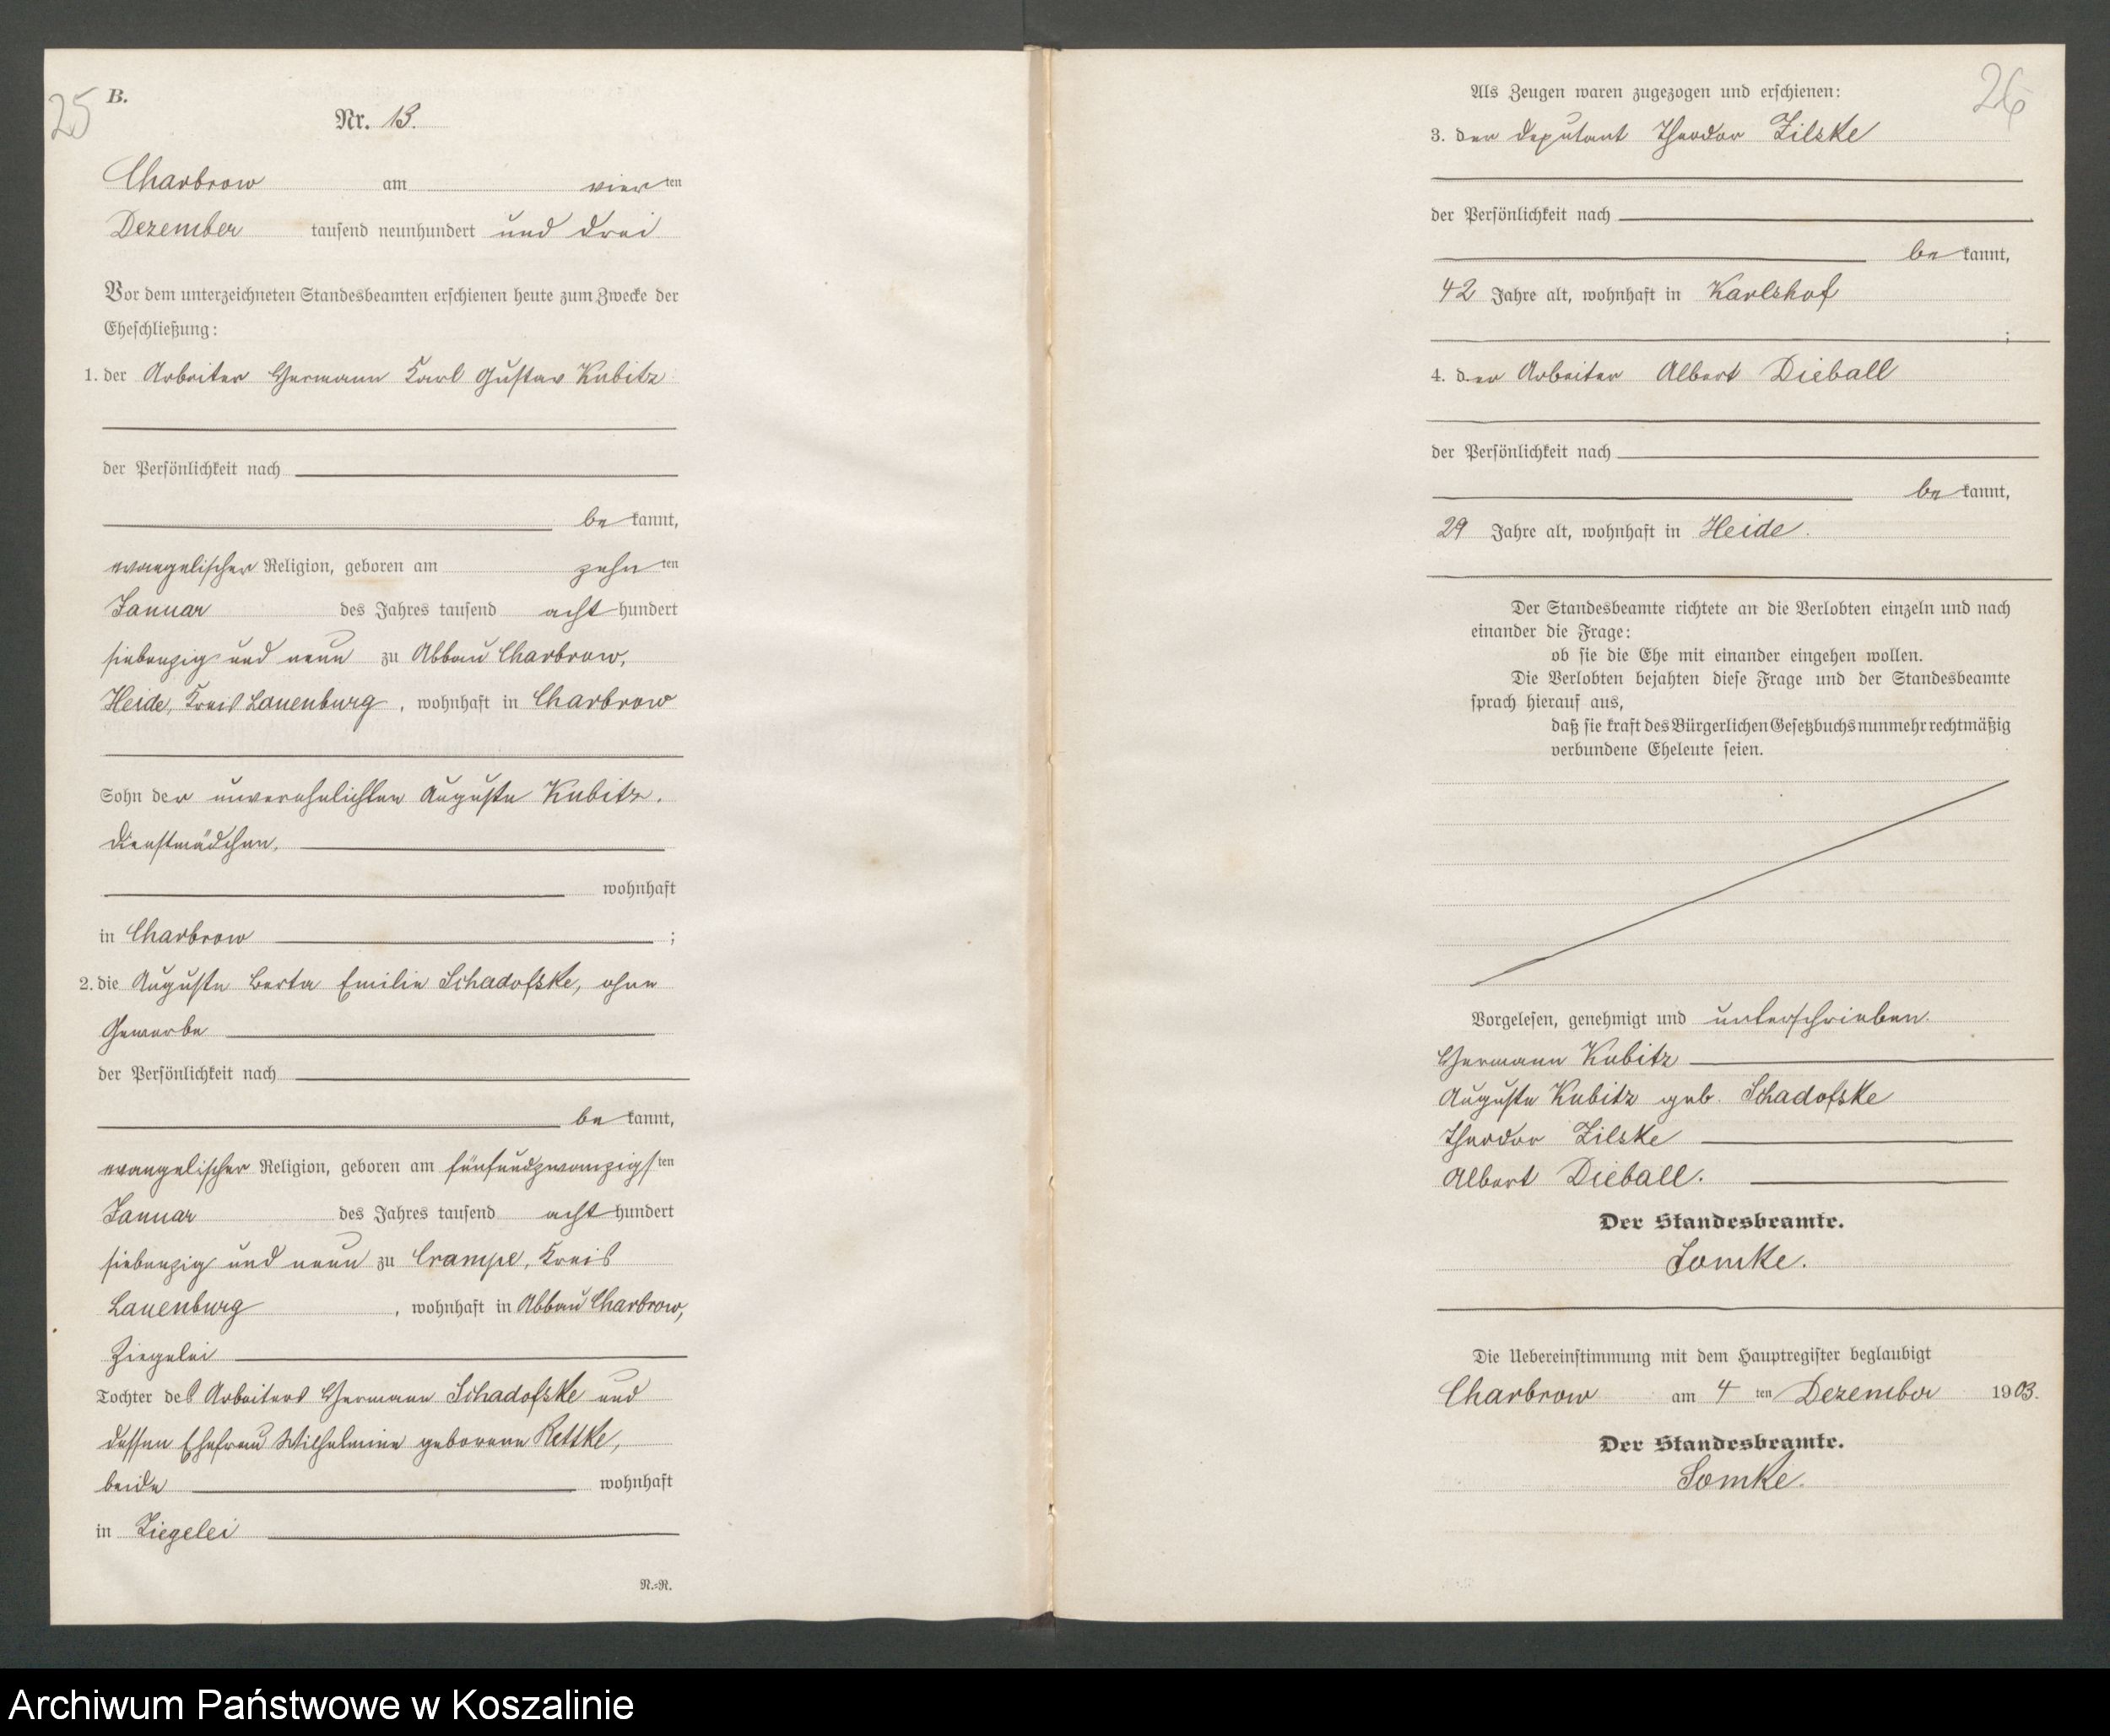 25
B.
Nr. 13.
Charbrow am vierten
Dezember tausend neunhundert und drei
Vor dem unterzeichneten Standesbeamten erschienen heute zum Zwecke der
Eheschließung:
1. der Arbeiter Hermann Karl Gustav Kubitz
der Persönlichkeit nach
be kannt,
evangelischer Religion, geboren am zehnten
Januar des Jahres tausend acht hundert
siebenzig und neun zu Abbau Charbrow,
Heide, Kreis Lauenburg, wohnhaft in Charbrow
Sohn der unverehelichten Auguste Kubitz.
Dienstmädchen.
wohnhaft
in Charbrow ;
2. die Auguste Berta Emilie Schadofske, ohne
Gewerbe
der Persönlichkeit nach
be kannt,
evangelischer Religion, geboren am fünfundzwanzigsten
Januar des Jahres tausend acht hundert
siebenzig und neun zu Crampe, Kreis
Lauenburg, wohnhaft in Abbau Charbrow,
Ziegelei
Tochter des Arbeiters Hermann Schadofske und
dessen Ehefrau Wilhelmine geborene Rettke,
beide wohnhaft
in Ziegelei
N.=N.
26
Als Zeugen waren zugezogen und erschienen:
3. der Deputant Theodor Zilske
der Persönlichkeit nach
be kannt,
42 Jahre alt, wohnhaft in Karlshof
;
4. der Arbeiter Albert Dieball
der Persönlichkeit nach
be kannt,
29 Jahre alt, wohnhaft in Heide.
Der Standesbeamte richtete an die Verlobten einzeln und nach
einander die Frage:
ob sie die Ehe mit einander eingehen wollen.
Die Verlobten bejahten diese Frage und der Standesbeamte
sprach hierauf aus,
daß sie kraft des Bürgerlichen Gesetzbuchs nunmehr rechtmäßig
verbundene Eheleute seien.
Vorgelesen, genehmigt und unterschrieben.
Hermann Kubitz
Auguste Kubitz geb. Schadofske
Theodor Zilske
Albert Dieball.
Der Standesbeamte.
Somke.
Die Uebereinstimmung mit dem Hauptregister beglaubigt
Charbrow am 4 ten Dezember 1903.
Der Standesbeamte.
Somke.
Archiwum Państwowe w Koszalinie